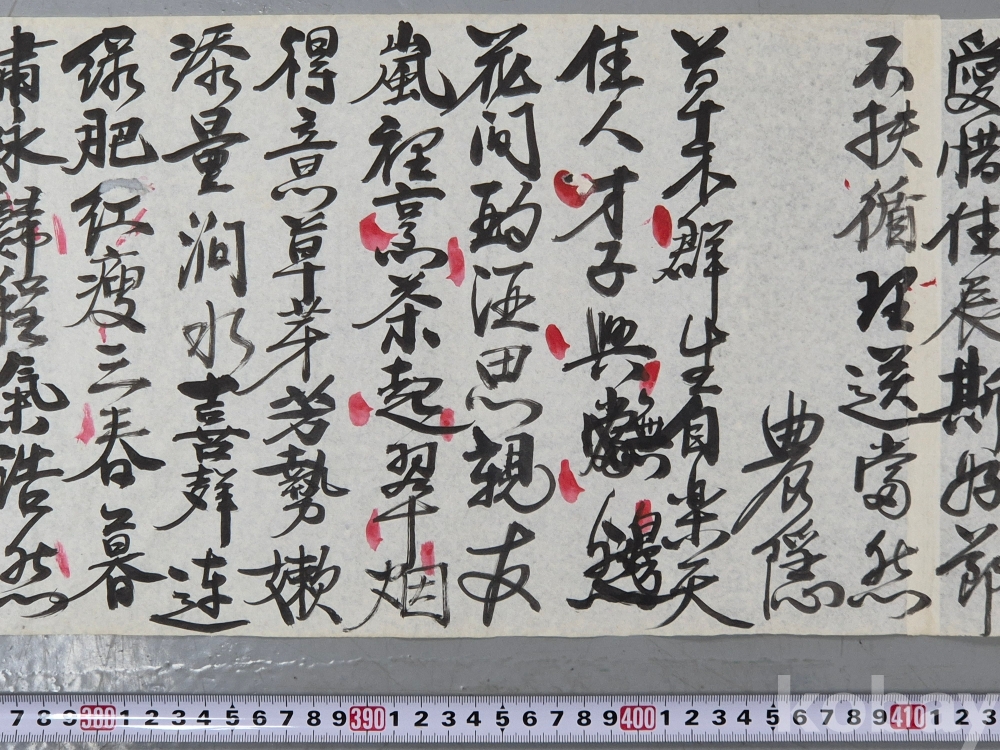 愛惜佳辰斯好節
不扶循理送當然
農隱
草木群生自楽天
佳人才子興無邊
花間酌酒思親友
嵐裡烹茶起翠烟
得意草芽芳勢嫩
添量澗水喜聲連
綠肥紅瘦三春暮
歸程氣浩然
7 8 9 380 1 2 3 4 5 6 7 8 9 390 1 2 3 4 5 6 7 8 9 400 1 2 3 4 5 6 7 8 9 410 1 2 3
kobay